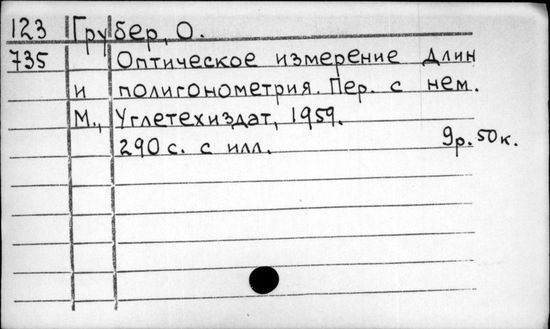 123 Грубер, О.
735 Оптическое измерение длин
и полигонометрия. Пер. с нем.
М., Углетехиздат, 1959.
290 с. с илл. 9р. 50к.